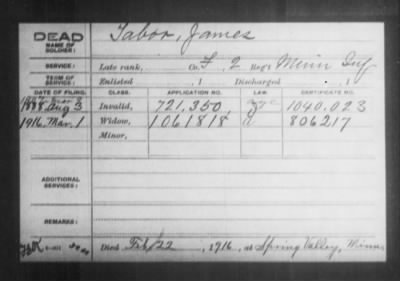 DEAD Tabor, James
NAME OF SOLDIER:
SERVICE: Late rank, Co. F, 2 Reg't Minn Inf
TERM OF SERVICE: Enlisted , 1 Discharged , 1
DATE OF FILING. CLASS. APPLICATION NO. LAW. CERTIFICATE NO.
1888 Aug 3 Invalid, 721,350 1040,023
1916 Mar. 1 Widow, 1061818 806217
Minor,
ADDITIONAL SERVICES:
REMARKS:
Died Feb 22, 1916, at Spring Valley, Minn